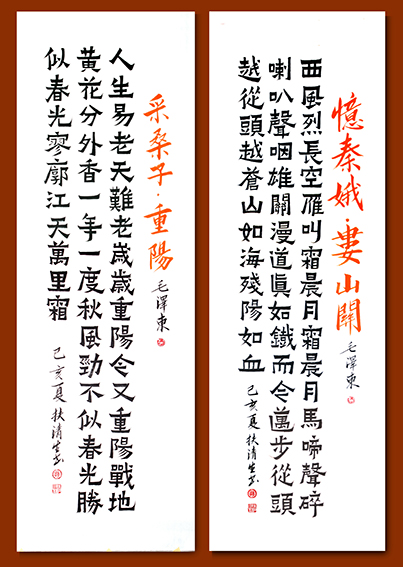 憶秦娥·婁山關
毛澤東
西風烈長空雁叫霜晨月霜晨月馬啼聲碎
喇叭聲咽雄關漫道眞如鐵而今邁步從頭
越從頭越蒼山如海殘陽如血
己亥夏扶清生书
采桑子·重陽
毛澤東
人生易老天難老歲歲重陽今又重陽戰地
黄花分外香一年一度秋風勁不似春光勝
似春光寥廓江天萬里霜
己亥夏扶清生书